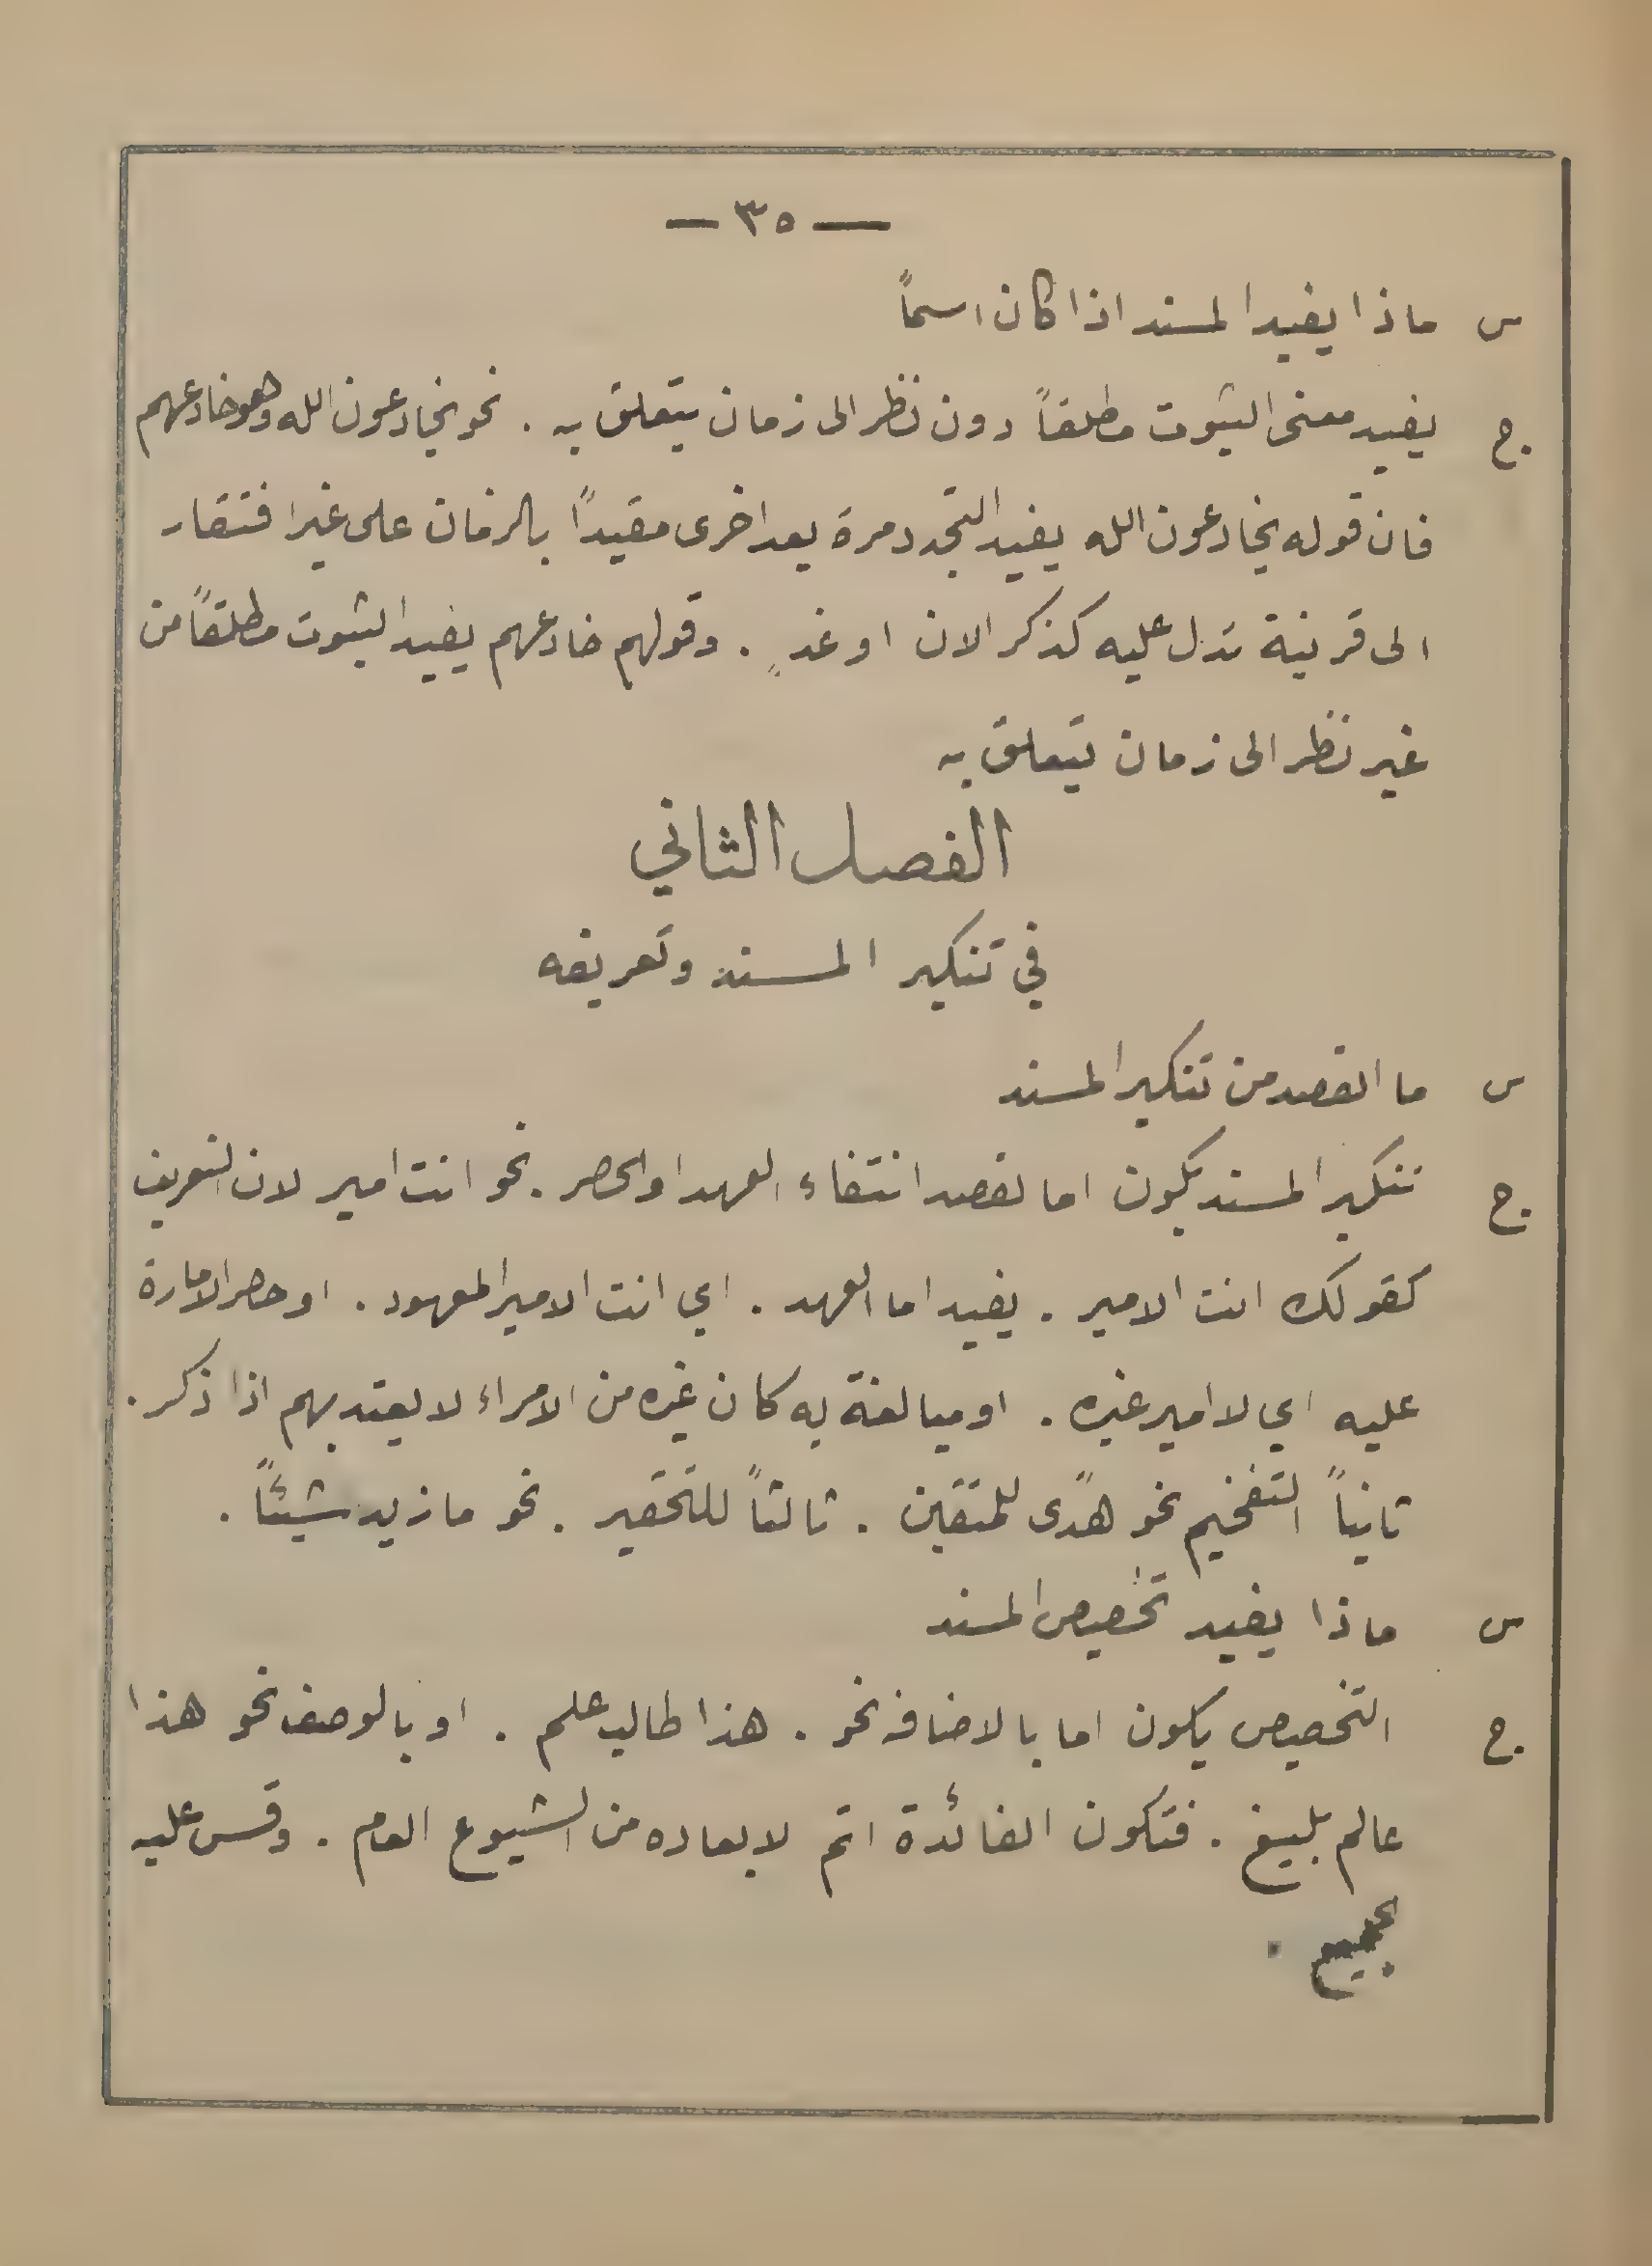 — ٣٥ —
س ماذا يفيد المسند اذا كان اسماً
ج. يفيد معنى الثبوت مطلقاً دون نظر الى زمان يتعلق به . نحو يخادعون الله وهو خادعهم
فان قوله يخادعون الله يفيد التجدد مرة بعد اخرى مقيداً بالزمان على غير افتقار
الى قرينة تدل عليه كذكر الان او غدٍ . وقولهم خادعهم يفيد الثبوت مطلقاً من
غير نظر الى زمان يتعلق به
الفصل الثاني
في تنكير المسند وتعريفه
س ما القصد من تنكير المسند
ج. تنكير المسند يكون اما لقصد انتفاء العهد او الحصر . نحو انت امير لان التعريف
كقولك انت الامير . يفيد اما العهد . اي انت الامير المعهود . او حصر الامارة
عليه اي لا امير غيره . او مبالغة به كان غيره من الامراء لا يعتد بهم اذا ذكر .
ثانياً التفخيم نحو هدًى للمتقين . ثالثاً للتحقير . نحو ما زيد شيئاً .
س ماذا يفيد تخصيص المسند
ج. التخصيص يكون اما بالاضافه نحو . هذا طالب علم . او بالوصف نحو هذا
عالم بليغ . فتكون الفائدة اتم لابعاده من الشيوع العام . وقس عليه
الجميع .